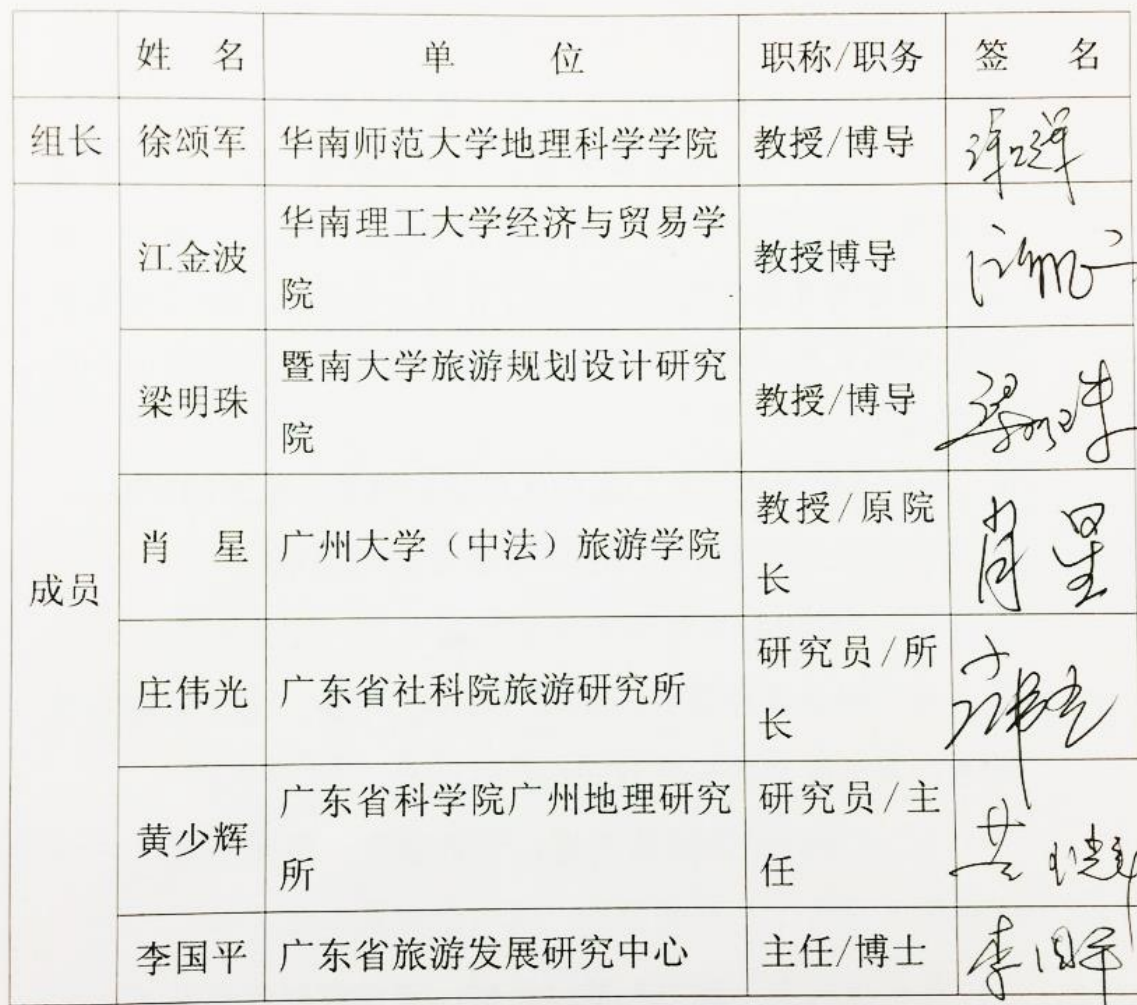 姓 名 单 位 职称/职务 签 名
组长 徐颂军 华南师范大学地理科学学院 教授/博导
江金波 华南理工大学经济与贸易学
院 教授博导
梁明珠 暨南大学旅游规划设计研究
院 教授/博导 梁明珠
成员
肖 星 广州大学(中法)旅游学院 教授/原院
长 肖星
庄伟光 广东省社科院旅游研究所 研究员/所
长
黄少辉 广东省科学院广州地理研究
所 研究员/主
任
李国平 广东省旅游发展研究中心 主任/博士 李国平